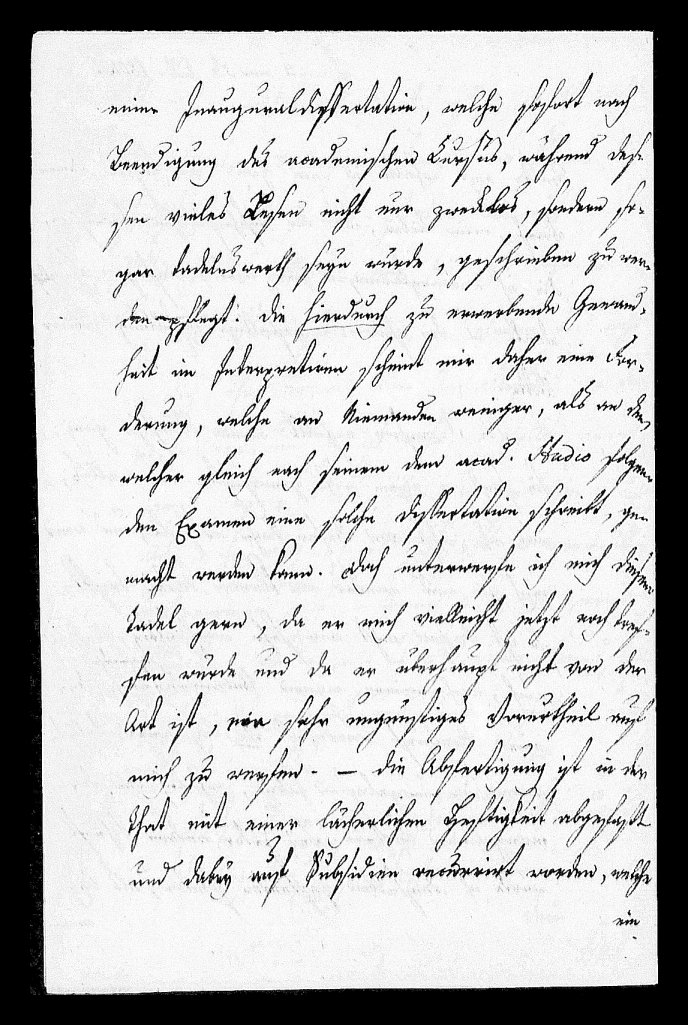 einer Inauguraldissertation, welche sofort nach
Beendigung des academischen Cursus, während des-
sen vieles Lesen nicht nur zwecklos, sondern so-
gar tadelnswerth seyn würde, geschrieben zu wer-
den pflegt: die hierdurch zu erwerbende Gewand-
heit im Interpretiren scheint mir daher eine For-
derung, welche an Niemanden weniger, als an den,
welcher gleich nach seinem dem acad. Studio folgen-
den Examen eine solche Dissertation schreibt, ge-
macht werden kann. Doch unterwerfe ich mich diesem
Tadel gern, da er mich vielleicht jetzt noch tref-
fen würde und da er überhaupt nicht von der
Art ist, ein sehr ungünstiges Vorurtheil auf
mich zu werfen. — Die Abfertigung ist in der
That mit einer lächerlichen Heftigkeit abgefaßt
und dabey auf Subsidien recurrirt worden, welche
ein